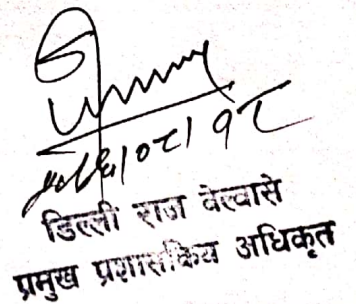 डिल्ली राज वेल्वासे
प्रमुख प्रशासकिय अधिकृत